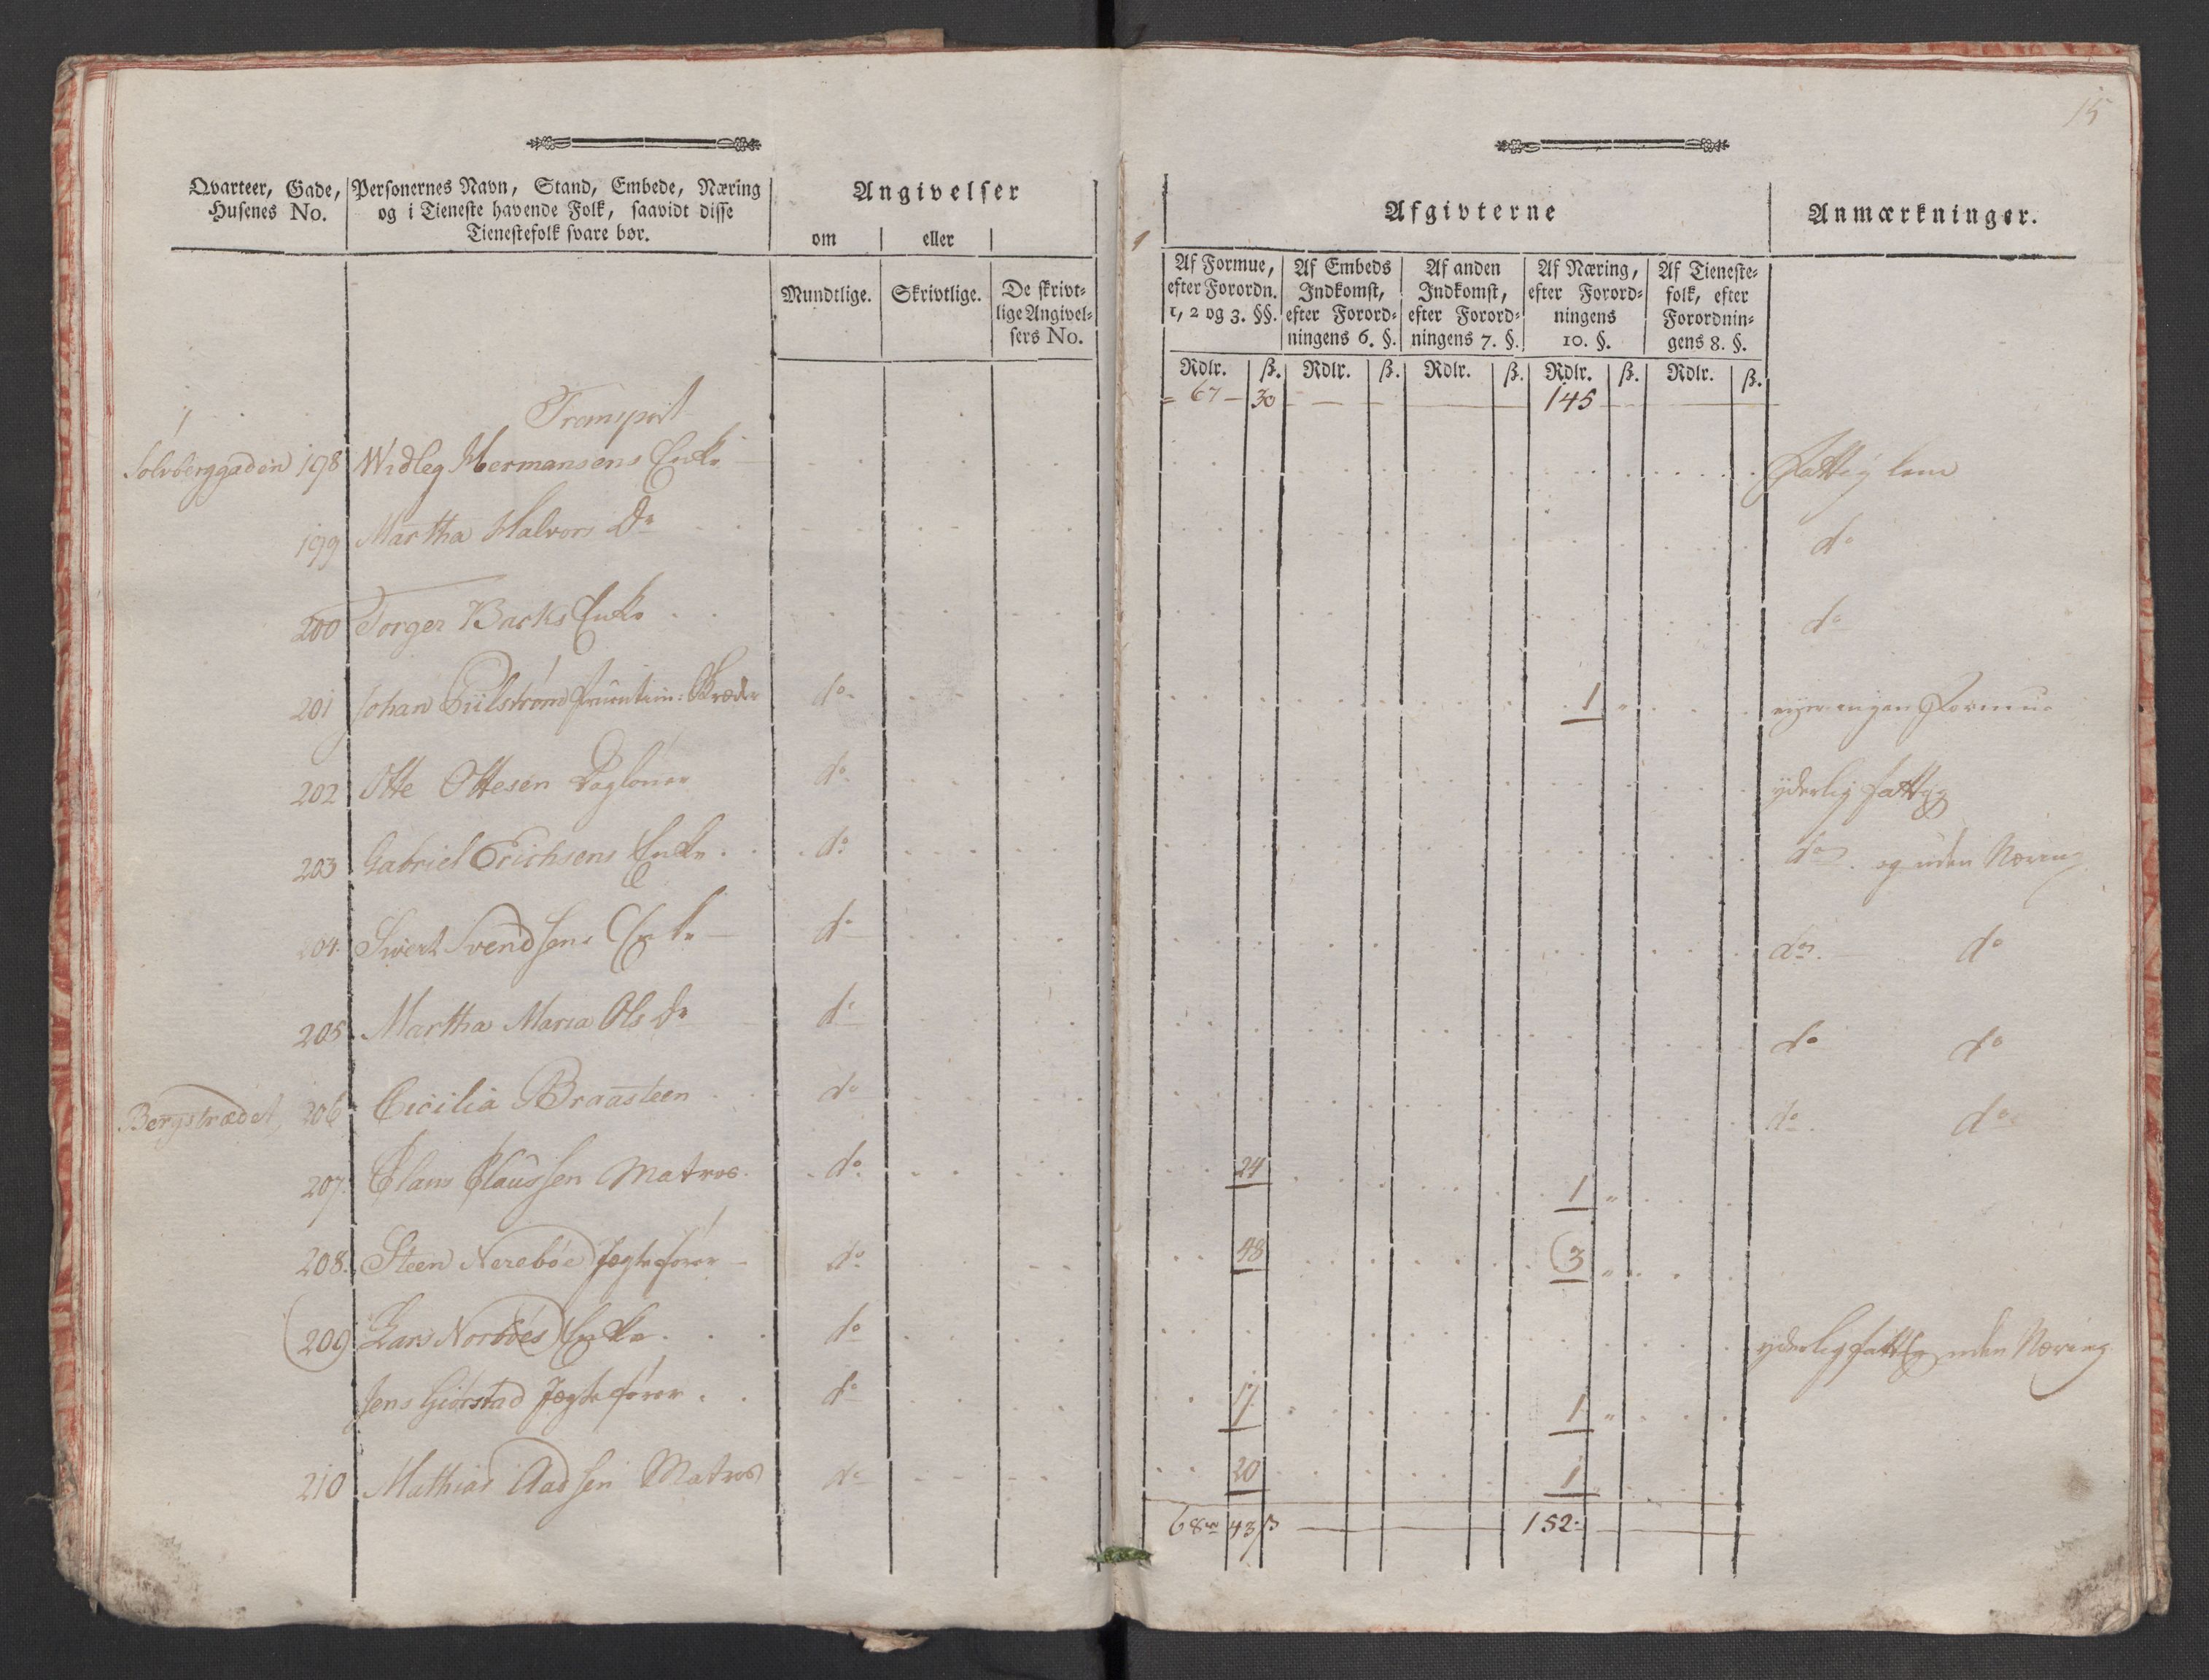 15
Qvarteer, Gade, Husenes No.
Personernes Navn, Stand, Embede, Næring
og i Tieneste havende Folk, saavidt disse
Tienestefolk svare bør.
Angivelser
om eller
Mundtlige. Skrivtlige. De skrivt-
lige Angivel-
sers No.
Afgivterne
Anmærkninger.
Af Formue, efter Forordn. 1, 2 og 3. §§.
Af Embeds Indkomst, efter Forord-
ningens 6. §.
Af anden Indkomst, efter Forord-
ningens 7. §.
Af Næring, efter Forord-
ningens 10. §.
Af Tieneste-
folk, efter Forordnin-
gens 8. §.
Rdlr. ß. Rdlr. ß. Rdlr. ß. Rdlr. ß. Rdlr. ß.
Transport 67 30 145
Sølvberggaden 198 Widleg Hermansens Enke Fattig lem
199 Martha Halvors Dr do
200 Torger Backs Enke do
201 Johan Piilstrøm Skræder do 1 " eyer ingen Formue
202 Otte Ottesen Dagløner do yderlig fattig
203 Gabriel Erichsens Enke do do og uden Næring
204 Siwert Svendsens Enke do do do
205 Martha Maria Ols Dr do do do
Bergstrædet 206 Cicilia Braasteen do do do
207 Claus Claussen Matros do 24 1 "
208. Steen Nerebøe Jægtefører do 48 3 "
209 Lars Norbøes Enke do yderlig fattig uden Næring
Jens Giørstad Jægtefører do 17 1 "
210 Mathias Aadsen Matros do 20 1
68 43 ß 152